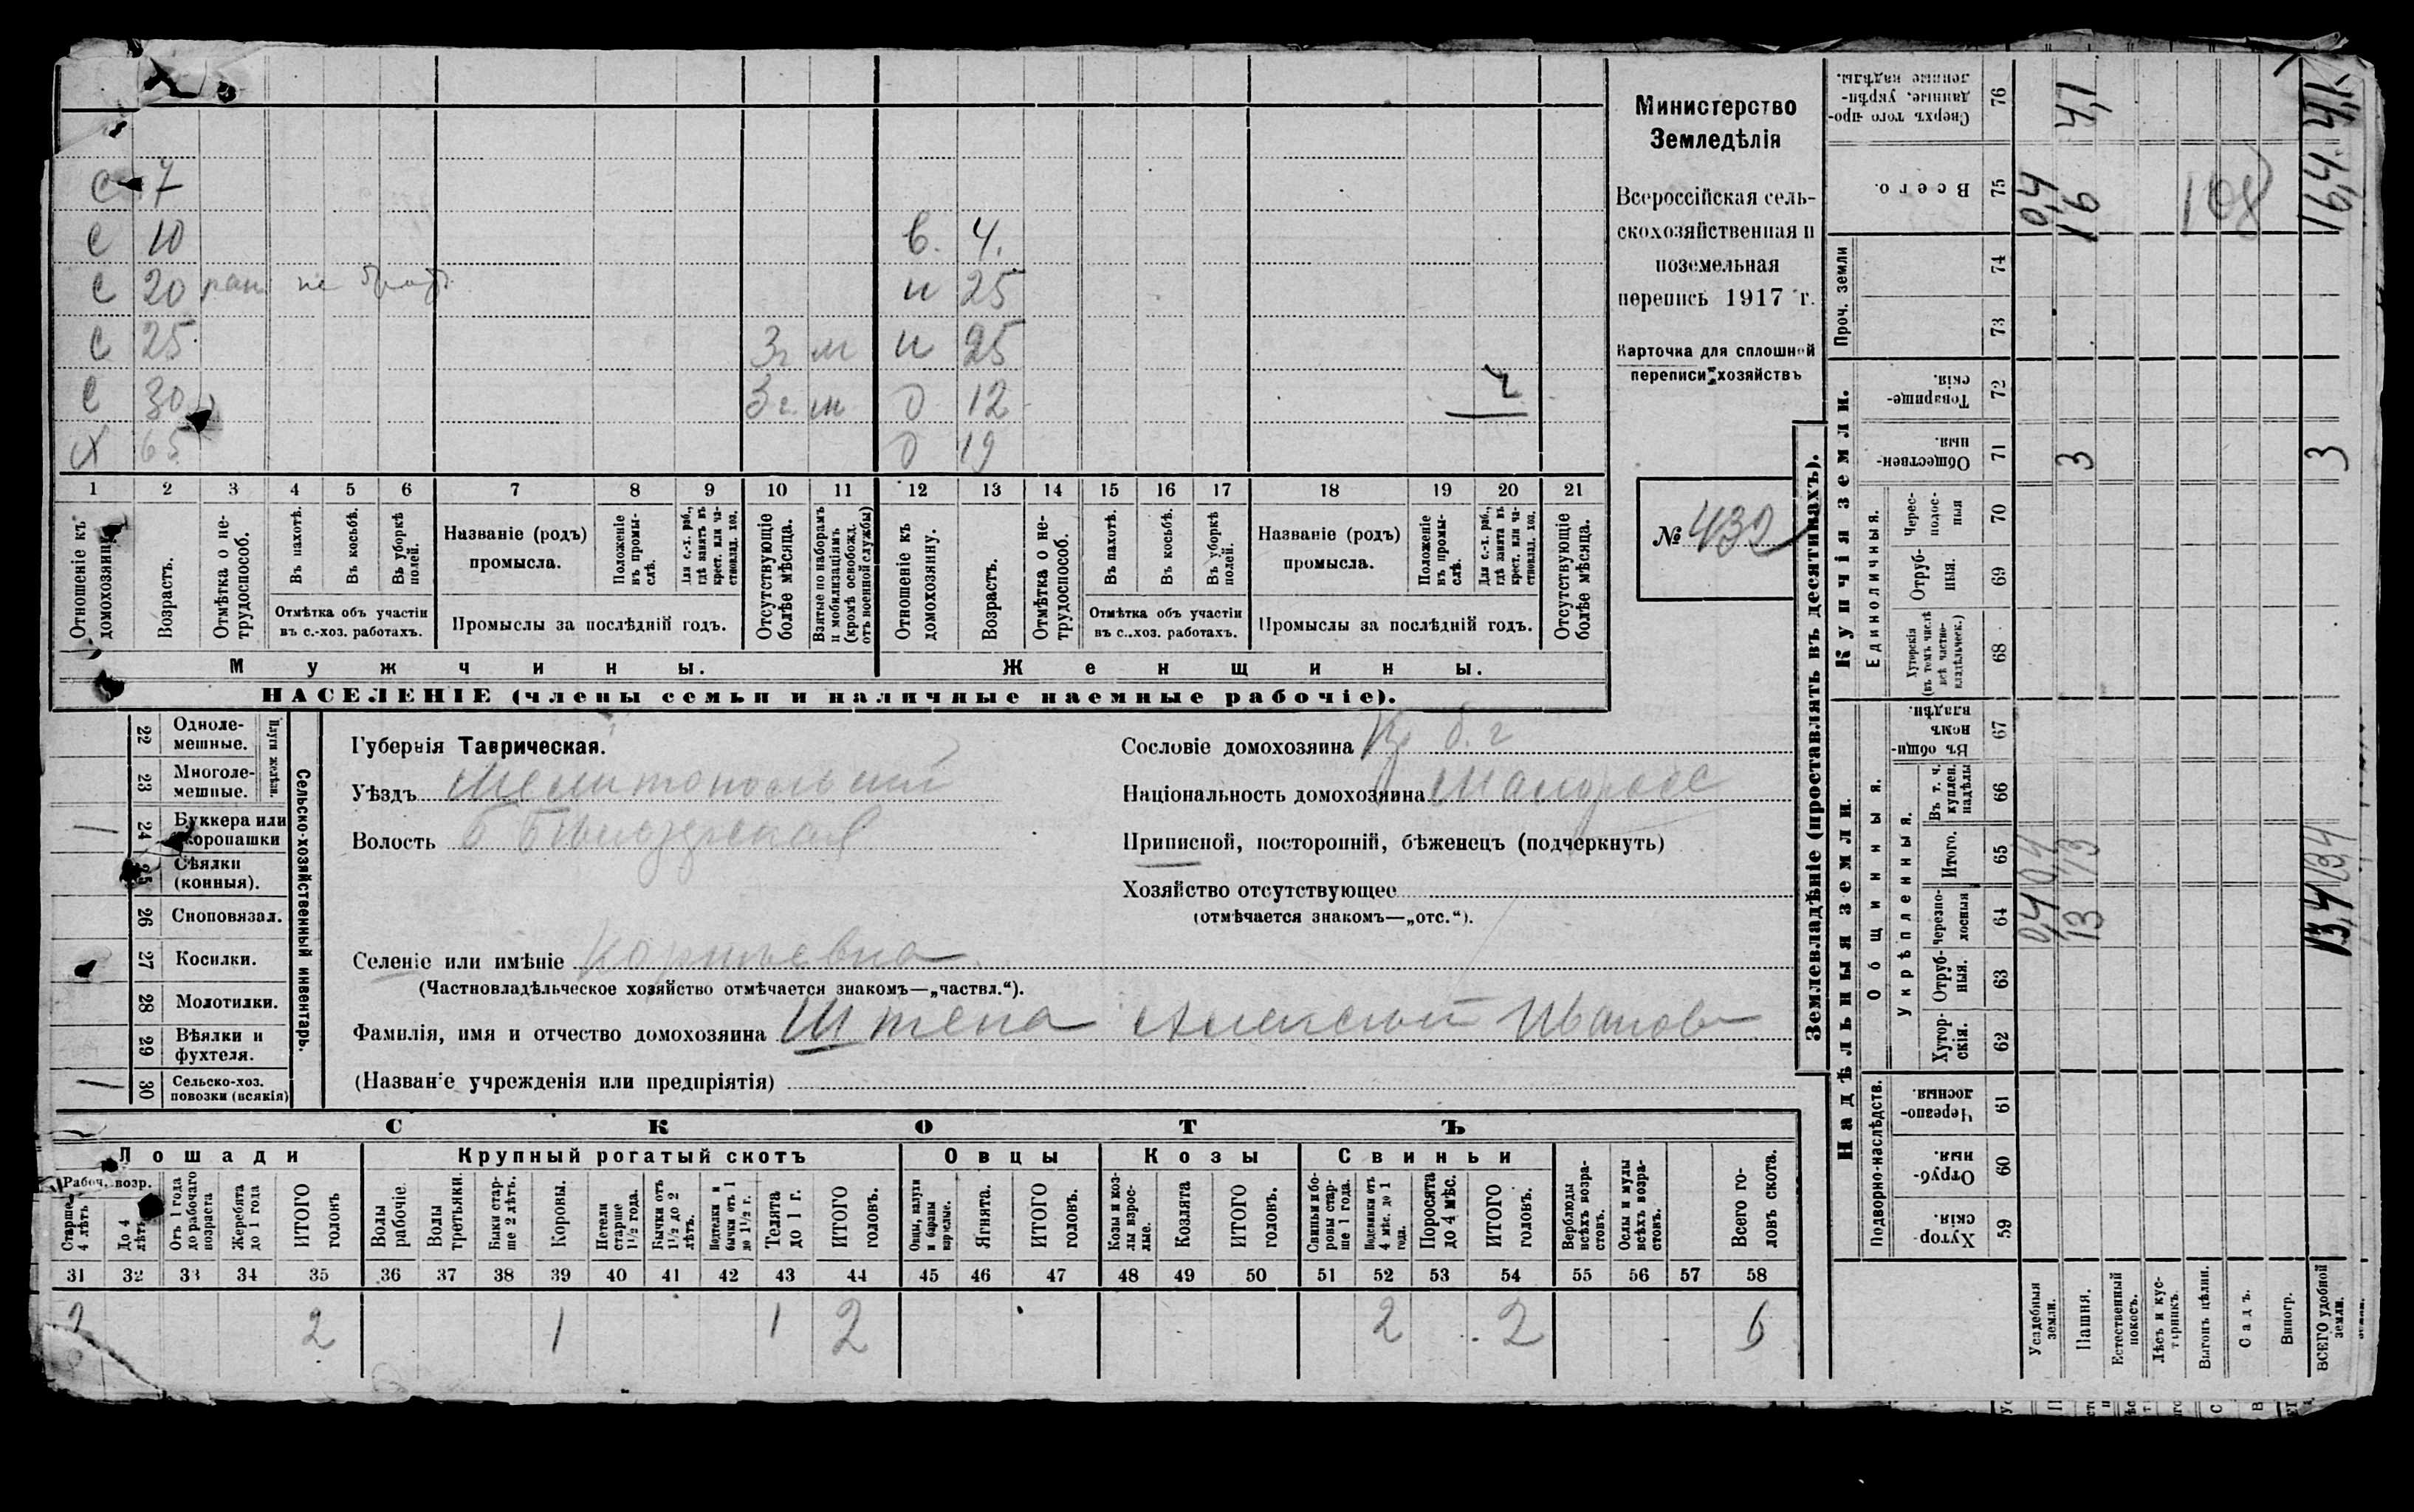 С 7
С 10 в. 4.
С 20 ран не н 25
С 25 3 г м н 25
С 30 3 г. м О 12
Х 65 О 19
1 2 3 4 5 6 7 8 9 10 11 12 13 14 15 16 17 18 19 20 21
Отношеніе къ домохозяину.
Возрастъ.
Отмѣтка о не-
трудоспособ.
Въ пахотѣ.
Въ косьбѣ.
Въ уборкѣ
полей.
Отмѣтка объ участіи
въ с.-хоз. работахъ.
Названіе (родъ)
промысла.
Положеніе
въ промы-
слѣ.
Для с.-х. раб.,
гдѣ занятъ въ
крест. или ча-
стновлад. хоз.
Промыслы за послѣдній годъ.
Отсутствующіе
болѣе мѣсяца.
Взятые по наборамъ
и мобилизаціямъ
(кромѣ освобожд.
отъ военной службы)
Отношеніе къ
домохозяину.
Возрастъ.
Отмѣтка о не-
трудоспособ.
Въ пахотѣ.
Въ косьбѣ.
Въ уборкѣ
полей.
Отмѣтка объ участіи
въ с..хоз. работахъ.
Названіе (родъ)
промысла.
Положеніе
въ промы-
слѣ.
Для с.-х. раб.,
гдѣ занята въ
крест. или ча-
стновлад. хоз.
Промыслы за послѣдній годъ.
Отсутствующіе
болѣе мѣсяца.
Мужчины.
Женщины.
НАСЕЛЕНІЕ (члены семьи и наличные наемные рабочіе).
Министерство
Земледѣлія
Всероссійская сель-
скохозяйственная и
поземельная
перепись 1917 г.
Карточка для сплошной
переписи хозяйствъ
№ 432
22 Одноле-
мешные.
23 Многоле-
мешные.
Плуги желѣзн.
24 Буккера или
скоропашки
25 Сѣялки
(конныя).
26 Сноповязал.
27 Косилки.
28 Молотилки.
29 Вѣялки и
фухтеля.
30 Сельско-хоз.
повозки (всякія)
Сельско-хозяйственный инвентарь.
Губернія Таврическая.
Уѣздъ Мелитопольскій
Волость Б Бѣлозерская
Селеніе или имѣніе Корнѣевка
(Частновладѣльческое хозяйство отмѣчается знакомъ—„частвл.“).
Фамилія, имя и отчество домохозяина Штепа Алексей Иванов
(Названіе учрежденія или предпріятія)
Сословіе домохозяина Кр б. г
Національность домохозяина Малоросс
Приписной, посторонній, бѣженецъ (подчеркнуть)
Хозяйство отсутствующее
(отмѣчается знакомъ—„отс.“).
СКОТЪ
Лошади
Крупный рогатый скотъ
Овцы
Козы
Свиньи
Рабоч. возр.
Старше
4 лѣтъ
До 4
лѣтъ
Отъ 1 года
до рабочаго
возраста
Жеребята
до 1 года
ИТОГО
головъ
Волы
рабочіе.
Волы
третьяки.
Быки стар-
ше 2 лѣтъ.
Коровы.
Нетели
старше
1½ года.
Бычки отъ
1½ до 2
лѣтъ.
Подтелки и
бычки отъ 1
до 1½ г.
Телята
до 1 г.
ИТОГО
головъ.
Овцы, валухи
и бараны
взрослые.
Ягнята.
ИТОГО
головъ.
Козы и коз-
лы взрос-
лые.
Козлята
ИТОГО
головъ.
Свиньи и бо-
ровы стар-
ше 1 года.
Подсвинки отъ
4 мѣс. до 1
года.
Поросята
до 4 мѣс.
ИТОГО
головъ.
Верблюды
всѣхъ возра-
стовъ.
Ослы и мулы
всѣхъ возра-
стовъ.
Всего го-
ловъ скота.
31 32 33 34 35 36 37 38 39 40 41 42 43 44 45 46 47 48 49 50 51 52 53 54 55 56 57 58
2 2 1 1 2 2 2 6
Землевладѣніе (проставлять въ десятинахъ).
Надѣльныя земли.
Купчія земли.
Проч. земли
Подворно-наслѣдств.
Общинныя.
Укрѣпленныя.
Единоличныя.
76 Сверхъ того про-
данные, укрѣп-
ленные надѣлы.
75 Всего.
74
73
72 Товарище-
скія.
71 Обществен-
ныя.
70 Черес-
полос-
ныя
69 Отруб-
ныя.
68 Хуторскія
(въ томъ числѣ
всѣ частно-
владѣльческ.)
67 Въ общи-
номъ
владѣн.
66 Въ т. ч.
куплен.
надѣлы
65 Итого.
64 Черезпо-
лосныя
63 Отруб-
ныя.
62 Хутор-
скія.
61 Черезпо-
лосныя
60 Отруб-
ныя.
59 Хутор-
скія.
Усадебныя
земли.
Пашня.
Естественный
покосъ.
Лѣсъ и кус-
тарникъ.
Выгонъ цѣлин.
Садъ.
Виногр.
ВСЕГО удобной
земли.
0,4 0,4 0,4
13 13 3 16 4,1
108
13,4 13,4 3 16,4 4,1